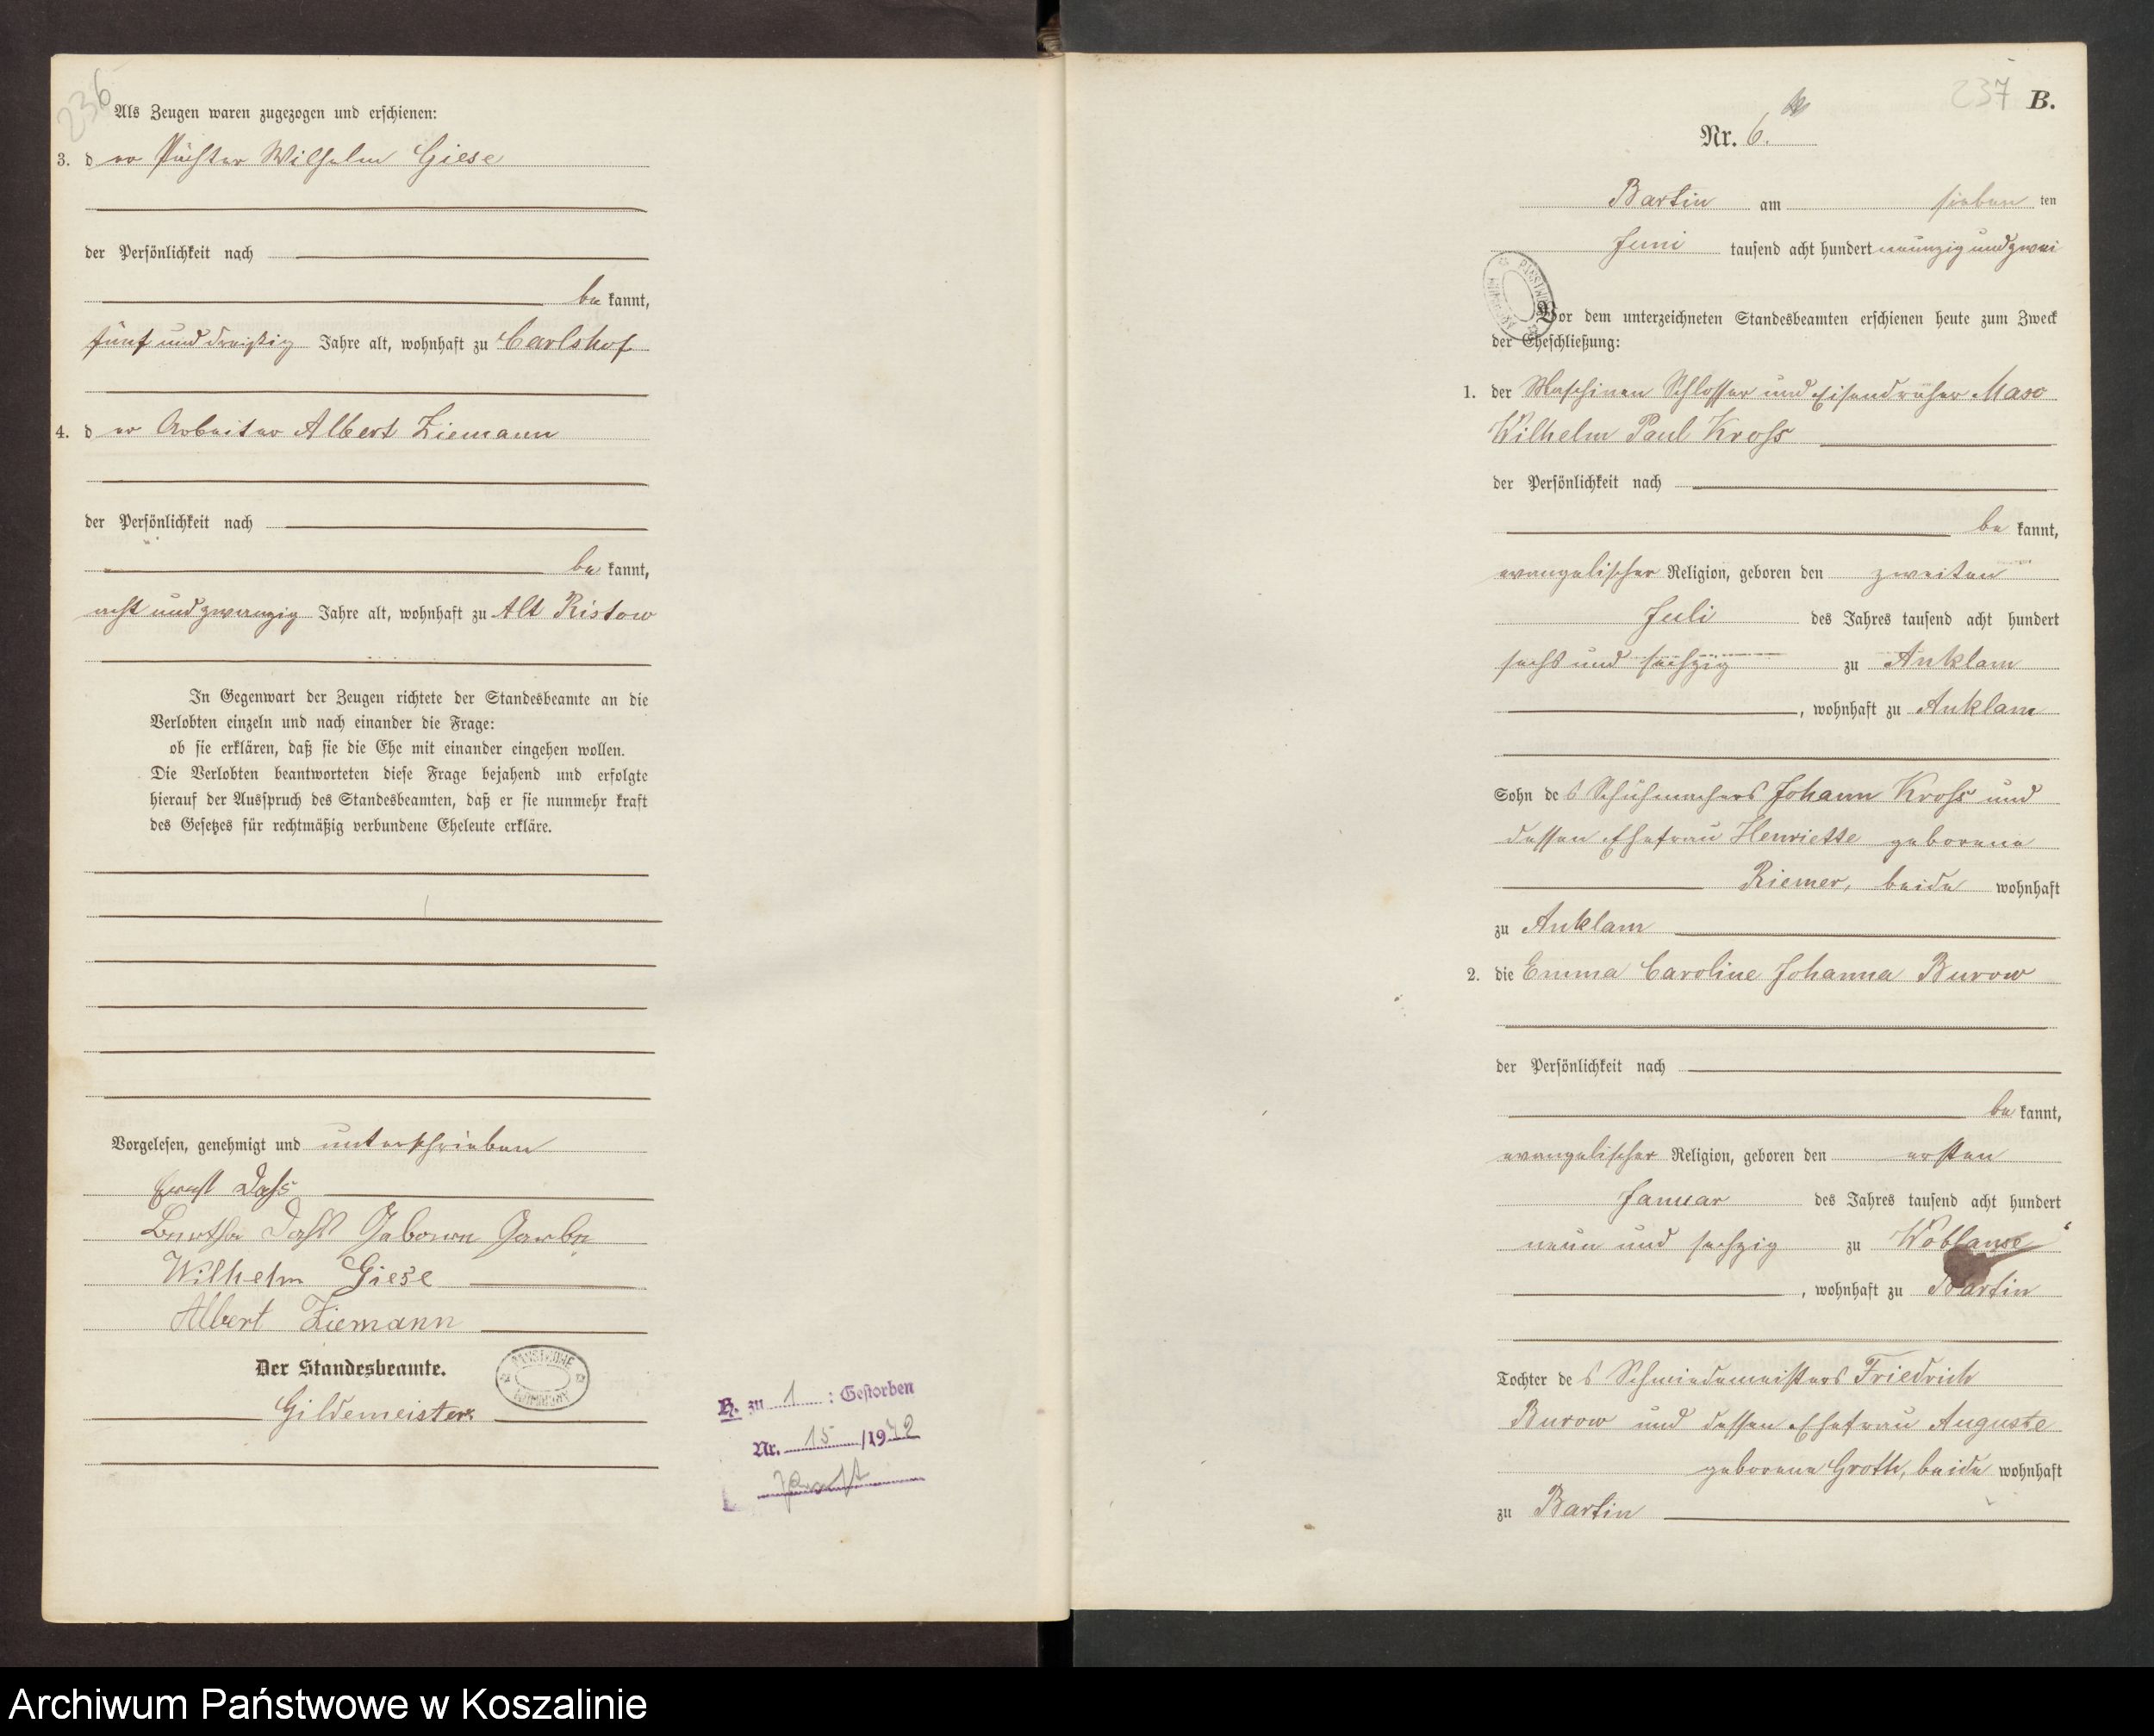 236
Als Zeugen waren zugezogen und erschienen:
3. der Pächter Wilhelm Giese
der Persönlichkeit nach
bekannt,
fünf und dreißig Jahre alt, wohnhaft zu Carlshof
4. der Arbeiter Albert Ziemann
der Persönlichkeit nach
bekannt,
acht und zwanzig Jahre alt, wohnhaft zu Alt Ristow
In Gegenwart der Zeugen richtete der Standesbeamte an die
Verlobten einzeln und nach einander die Frage:
ob sie erklären, daß sie die Ehe mit einander eingehen wollen.
Die Verlobten beantworteten diese Frage bejahend und erfolgte
hierauf der Ausspruch des Standesbeamten, daß er sie nunmehr kraft
des Gesetzes für rechtmäßig verbundene Eheleute erkläre.
Vorgelesen, genehmigt und unterschrieben
Ernst Daß
Wilhelm Giese
Albert Ziemann
Der Standesbeamte.
Gildemeister
H. zu 1 : Gestorben
Nr. 15/1942
237 B.
Nr. 6.
Bartin am sieben ten
Juni tausend acht hundert neunzig und zwei
Vor dem unterzeichneten Standesbeamten erschienen heute zum Zweck
der Eheschließung:
1. der Maschinen Schlosser und Eisendreher Max
Wilhelm Paul Kroß
der Persönlichkeit nach
bekannt,
evangelischer Religion, geboren den zweiten
Juli des Jahres tausend acht hundert
sechs und sechzig zu Anklam
, wohnhaft zu Anklam
Sohn des Schuhmachers Johann Kroß und
dessen Ehefrau Henriette geborene
Riemer, beide wohnhaft
zu Anklam
2. die Emma Caroline Johanna Burow
der Persönlichkeit nach
bekannt,
evangelischer Religion, geboren den ersten
Januar des Jahres tausend acht hundert
neun und sechzig zu Woblanse
, wohnhaft zu Bartin
Tochter des Schmiedemeisters Friedrich
Burow und dessen Ehefrau Auguste
geborene Groth, beide wohnhaft
zu Bartin
Archiwum Państwowe w Koszalinie